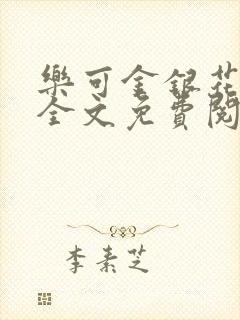 樂可金銀花
全文免費閱
李素芝